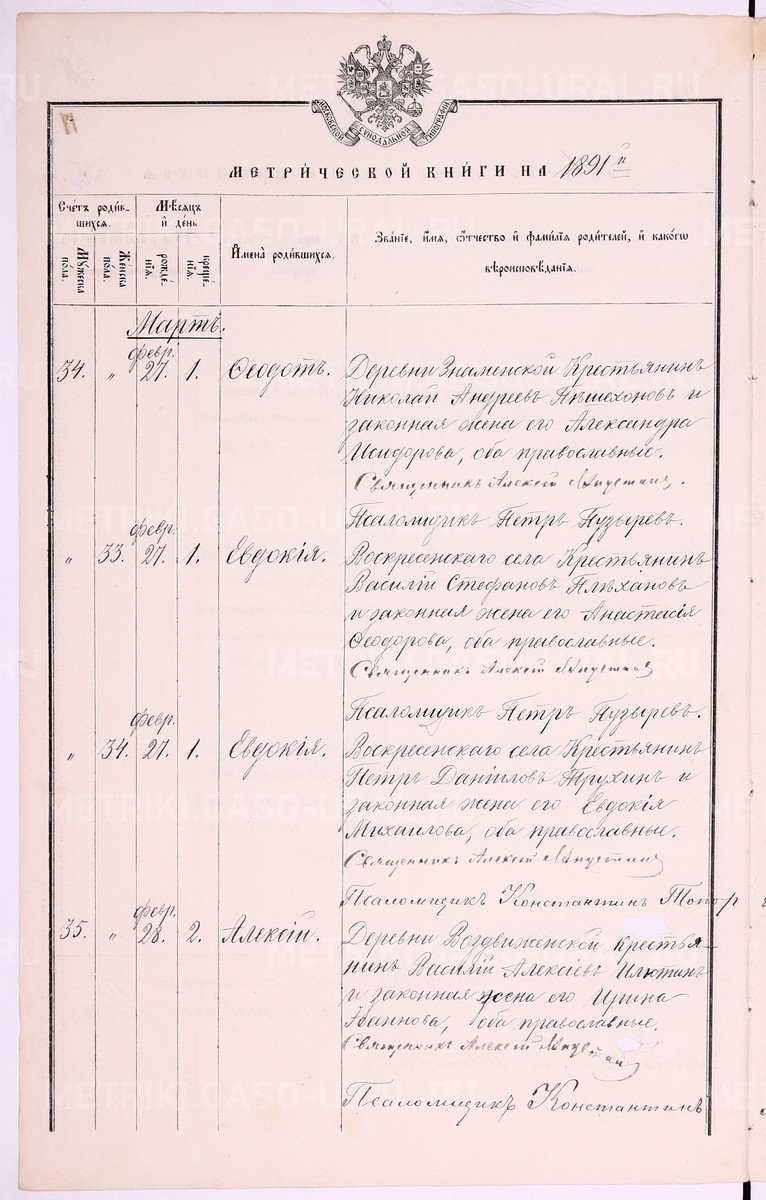 МОСКОВСКОЙ СѴНОДАЛЬНОЙ ТИПОГРАФІИ
МЕТРИ́ЧЕСКОЙ КНИ́ГИ НА 1891 й
Сче́тъ роди́в-
шихся.
Мѣсяцъ
и де́нь
Му́жеска
по́ла.
Же́нска
по́ла.
рожде́-
нїя.
креще́-
нїя.
Имена̀ роди́вшихся.
Зва́нїе, и́мя, ѻ҆́тчество и фами́лїя роди́телей, и како́гѡ
вѣроисповѣ́данїя.
Мартъ.
февр.
34. „ 27. 1. Ѳеодотъ. Деревни Знаменской Крестьянинъ
Николай Андреевъ Пѣшехоновъ и
законная жена его Александра
Исидорова, оба православные.
Священникъ Алексій
Псаломщикъ Петръ Пузыревъ.
февр.
„ 33. 27. 1. Евдокія. Воскресенскаго села Крестьянинъ
Василій Стефановъ Плѣхановъ
и законная жена его Анастасія
Ѳеодорова, оба православные.
Священникъ Алексій
Псаломщикъ Петръ Пузыревъ.
февр.
„ 34. 27. 1. Евдокія. Воскресенскаго села Крестьянинъ
Петръ Даніиловъ Трухинъ и
законная жена его Евдокія
Михаилова, оба православные.
Священникъ Алексій
Псаломщикъ Константинъ Топор
февр.
35. „ 28. 2. Алексій. Деревни Воздвиженской Крестья-
нинъ Василій Алексіевъ Илютинъ
и законная жена его Ирина
Іоаннова, оба православные.
Священникъ Алексій
Псаломщикъ Константинъ